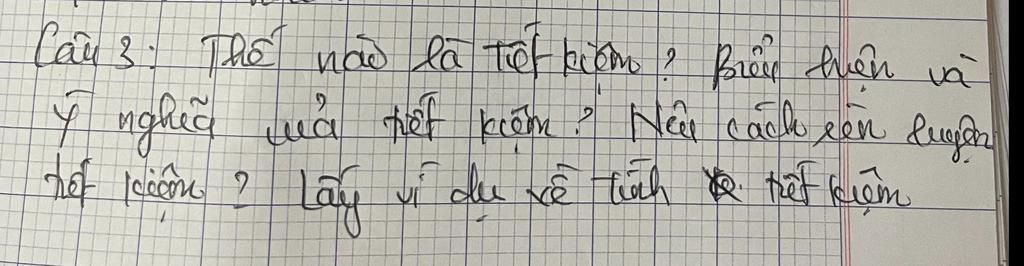 Câu 3: Thế nào là tiết kiệm? Biểu hiện và
ý nghĩa của tiết kiệm? Nêu cách rèn luyện
tiết kiệm? Lấy ví dụ về tính tiết kiệm